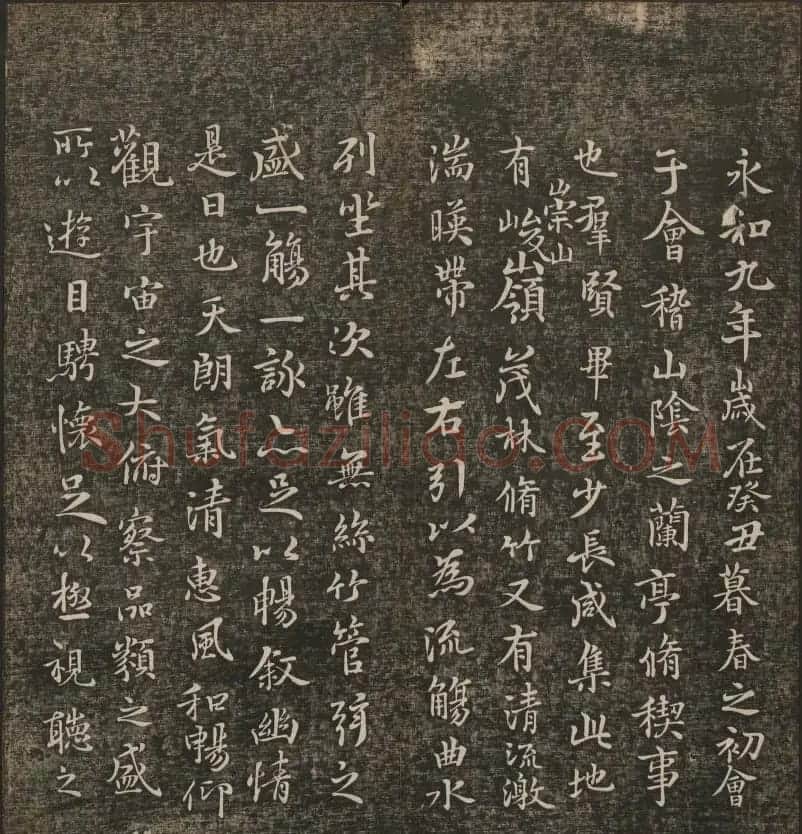 永和九年歲在癸丑暮春之初會
于會稽山陰之蘭亭脩稧事
也羣賢畢至少長咸集此地
有崇山峻嶺茂林脩竹又有清流激
湍暎帶左右引以為流觴曲水
列坐其次雖無絲竹管弦之
盛一觴一詠亦足以暢敘幽情
是日也天朗氣清惠風和暢仰
觀宇宙之大俯察品類之盛
所以遊目騁懷足以極視聽之
Shufaziliao.COM